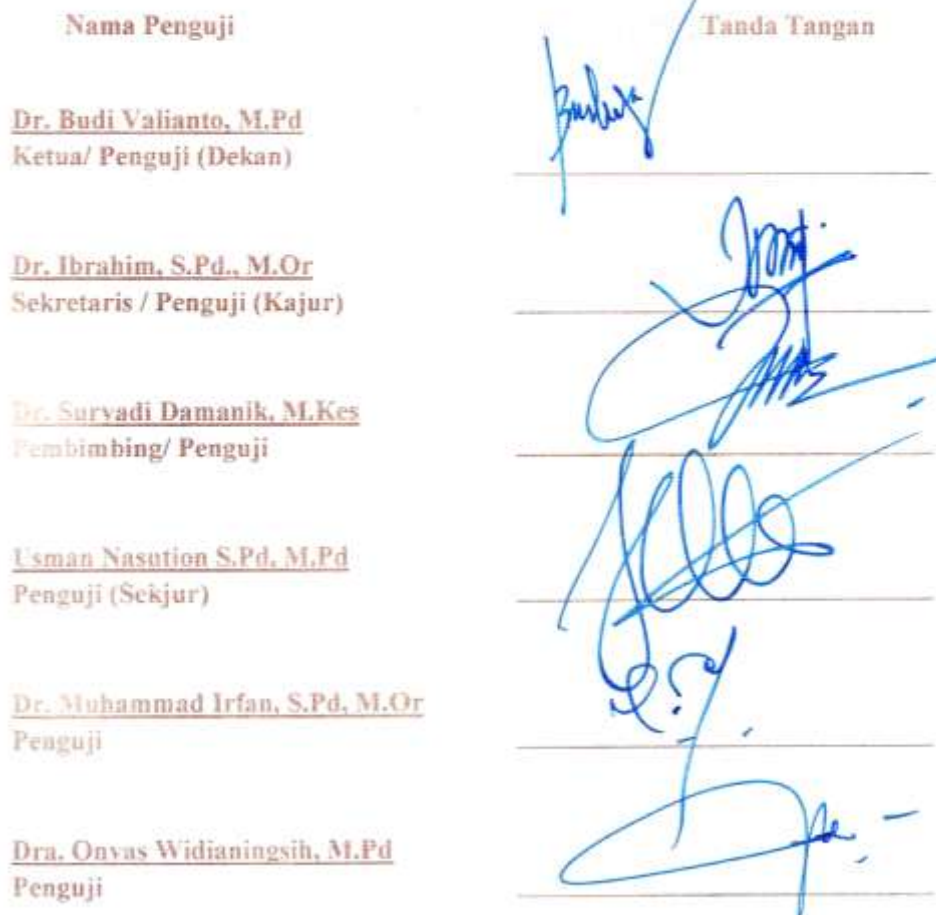 Nama Penguji Tanda Tangan
Dr. Budi Valianto, M.Pd
Ketua/ Penguji (Dekan)
Dr. Ibrahim, S.Pd., M.Or
Sekretaris / Penguji (Kajur)
Dr. Suryadi Damanik, M.Kes
Pembimbing/ Penguji
Usman Nasution S.Pd, M.Pd
Penguji (Sekjur)
Dr. Muhammad Irfan, S.Pd, M.Or
Penguji
Dra. Onyas Widianingsih, M.Pd
Penguji